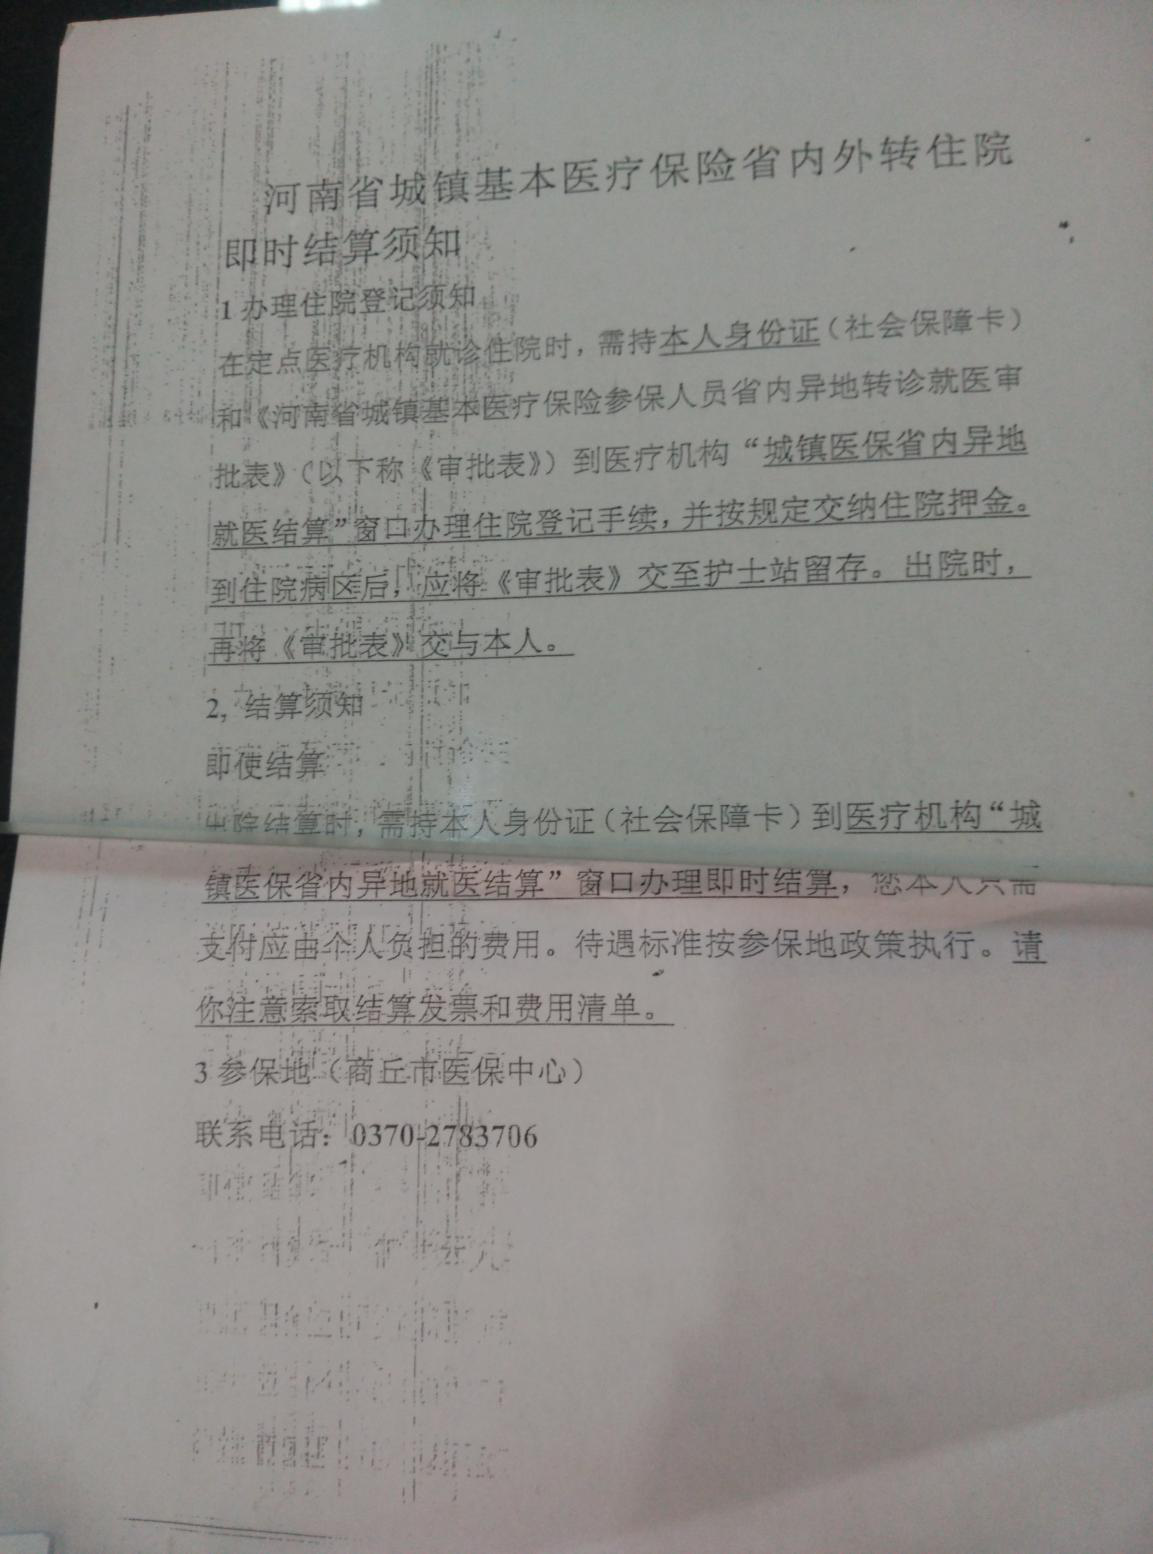 河南省城镇基本医疗保险省内外转住院
即时结算须知
1办理住院登记须知
在定点医疗机构就诊住院时，需持本人身份证（社会保障卡）
和《河南省城镇基本医疗保险参保人员省内异地转诊就医审
批表》（以下称《审批表》）到医疗机构“城镇医保省内异地
就医结算”窗口办理住院登记手续，并按规定交纳住院押金。
到住院病区后，应将《审批表》交至护士站留存。出院时，
再将《审批表》交与本人。
2，结算须知
即使结算
出院结算时，需持本人身份证（社会保障卡）到医疗机构“城
镇医保省内异地就医结算”窗口办理即时结算，您本人只需
支付应由个人负担的费用。待遇标准按参保地政策执行。请
你注意索取结算发票和费用清单。
3参保地（商丘市医保中心）
联系电话：0370-2783706